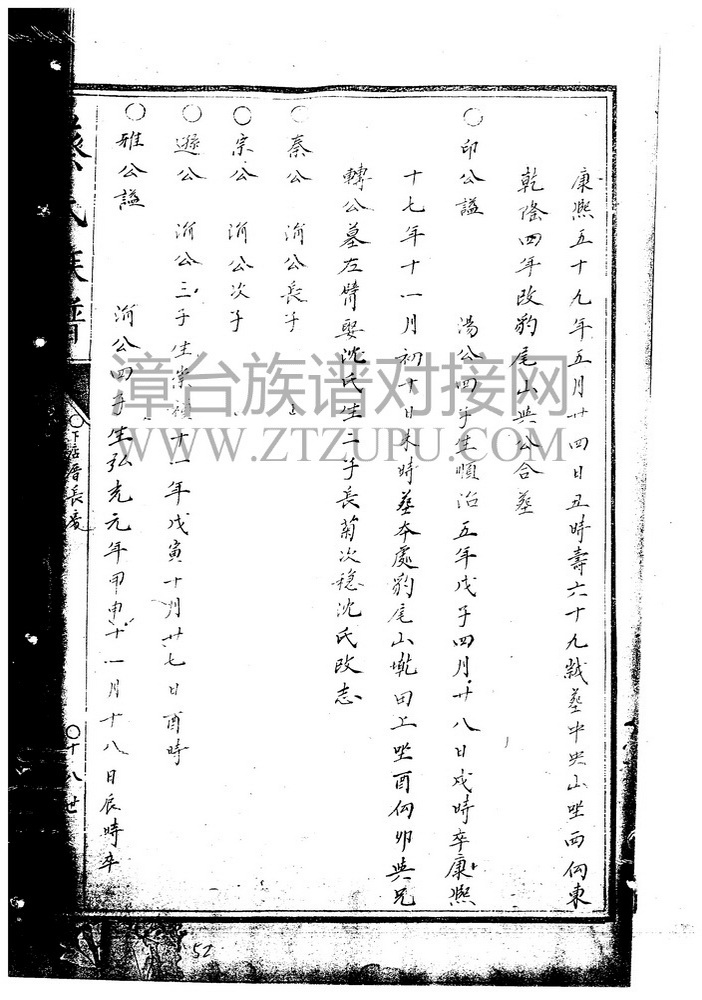 康熙五十九年五月廿四日丑時壽六十九歲葬中央山坐西向東
乾隆四年改豹尾山與公合葬
○印公諡 湯公四子生順治五年戊子四月廿八日戌時卒康熙
十七年十一月初十日未時葬本處豹尾山墘田上坐酉向卯與兄
轉公墓左臂娶沈氏生二子長菊次穩沈氏改志
○秦公 淯公長子
○宗公 淯公次子
○遜公 淯公三子生崇禎十一年戊寅十月廿七日酉時
○雅公諡 淯公四子生弘光元年甲申十一月十八日辰時卒
氏族譜
○下
長房
○十八世
52
漳台族谱对接网
WWW.ZTZUPU.COM